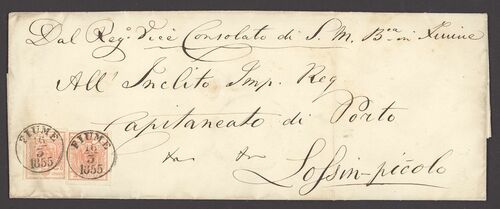 Dal Reg.º Vice Consolato di S. M. B.ca in Fiume
All' Inclito Imp. Reg
Capitaneato di Porto
Lossin-piccolo
FIUME
16
3
1855
FIUME
16
3
1855